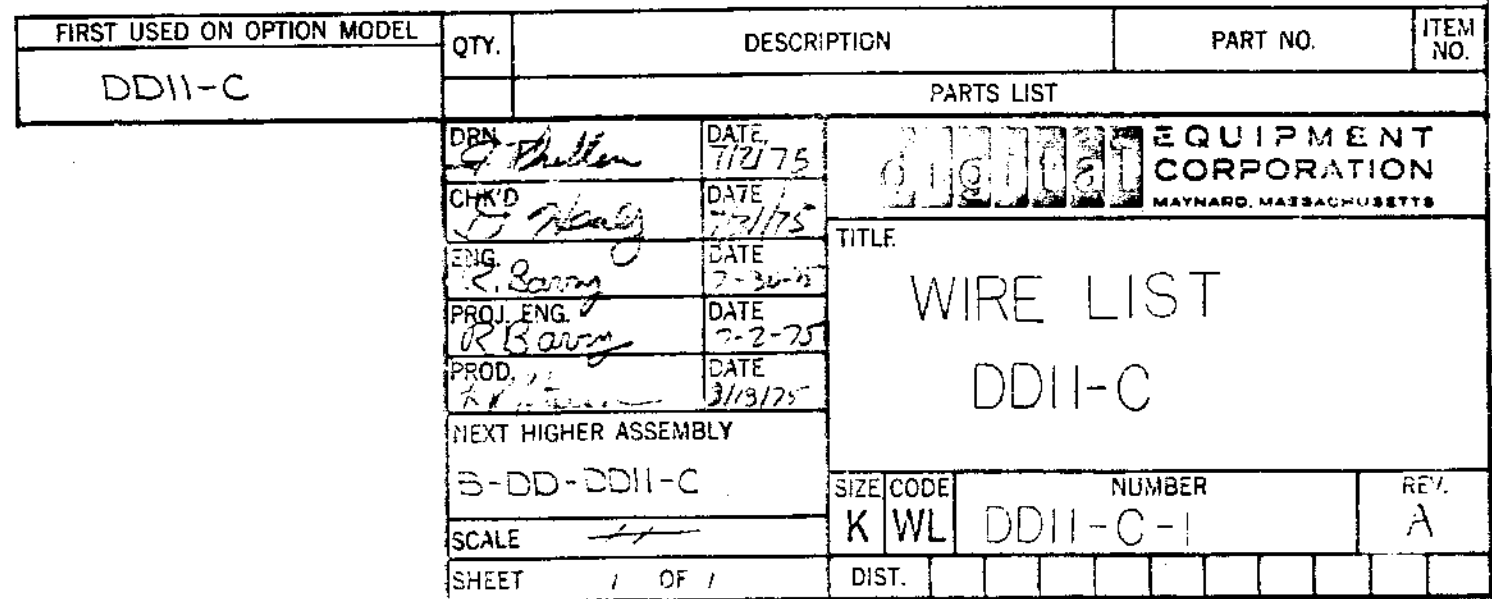 FIRST USED ON OPTION MODEL
DD11-C
QTY.
DESCRIPTION
PART NO.
ITEM NO.
PARTS LIST
DRN.
DATE
7/2/75
CHK'D
DATE
ENG.
R. Barry
DATE
PROJ. ENG.
R Barry
DATE
7-2-75
PROD.
DATE
NEXT HIGHER ASSEMBLY
B-DD-DD11-C
SCALE
SHEET 1 OF 1
digital EQUIPMENT
CORPORATION
MAYNARD, MASSACHUSETTS
TITLE
WIRE LIST
DD11-C
SIZE
K
CODE
WL
NUMBER
DD11-C-1
REV.
A
DIST.